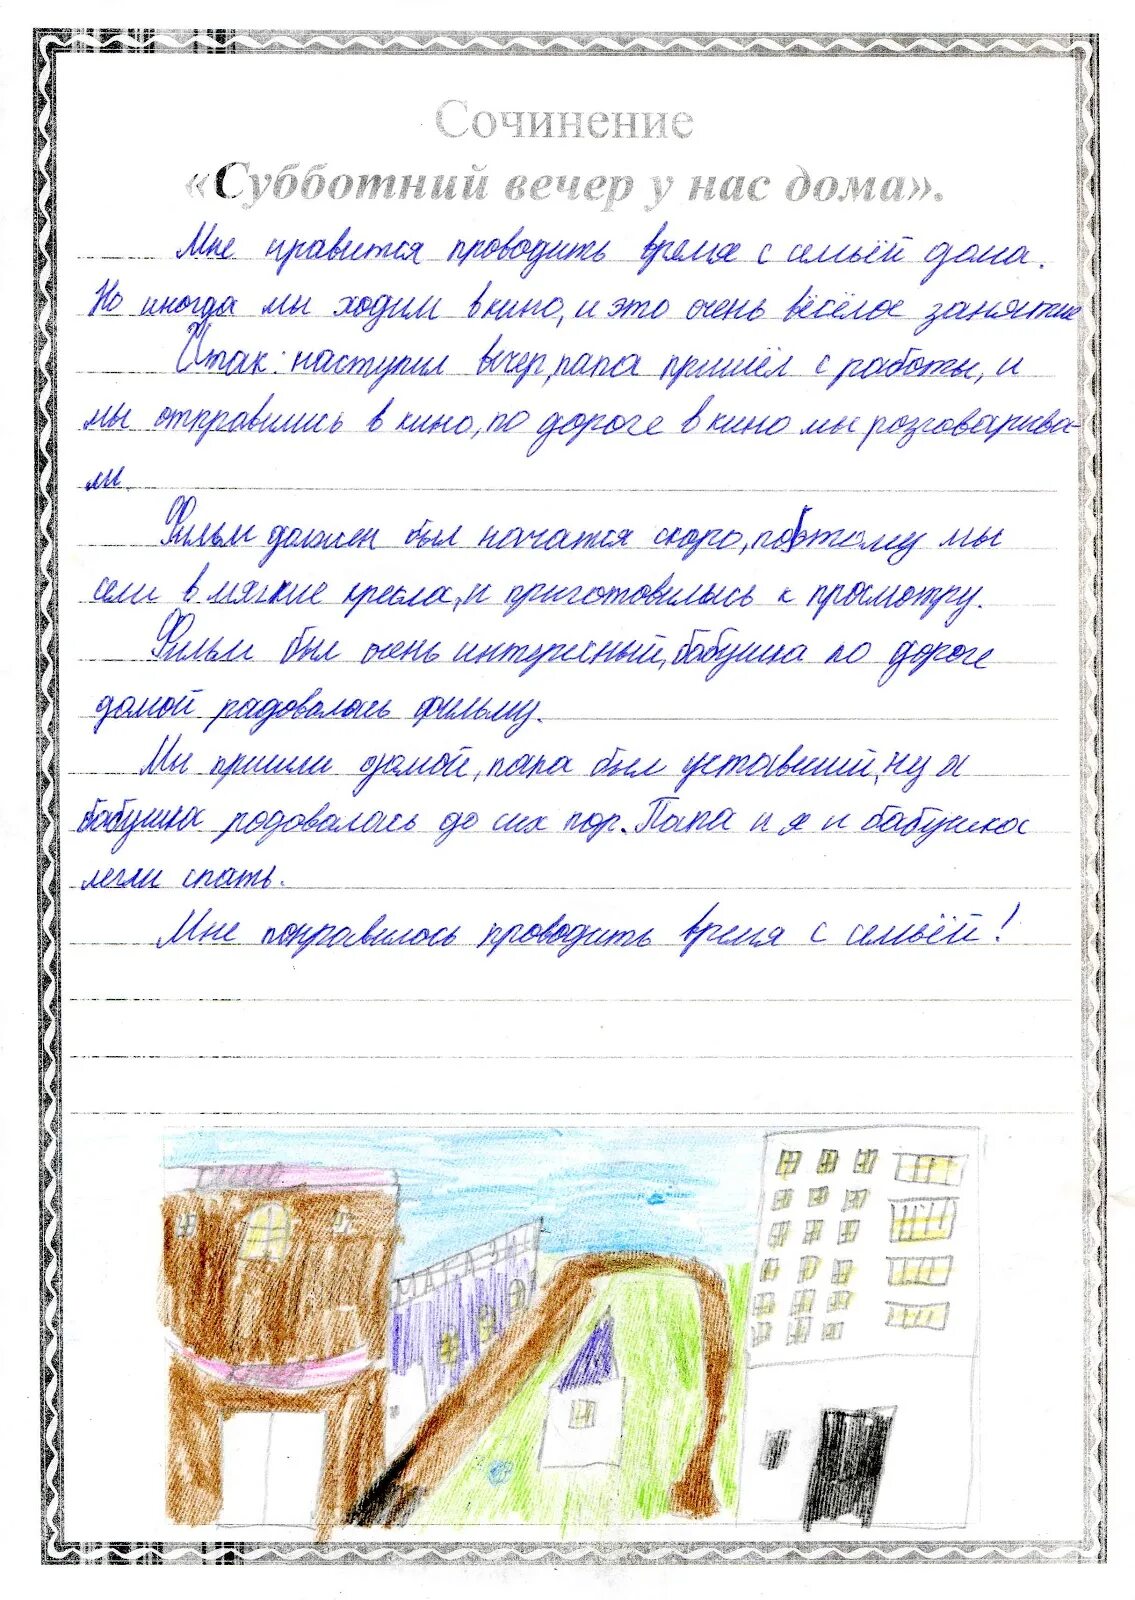 Сочинение
«Субботний вечер у нас дома».
Мне нравится проводить время с семьёй дома.
Но иногда мы ходим в кино, и это очень вёсёлое занятие
Итак: наступил вечер, папа пришёл с работы, и
мы отправились в кино, по дороге в кино мы розговарива-
ли.
Фильм должен был начатся скоро, поэтому мы
сели в мягкие кресла, и приготовились к просмотру.
Фильм был очень интересный, бабушка по дороге
домой радовалась фильму.
Мы пришли домой, папа был уставший, ну а
бабушка родовалась до сих пор. Папа и я и бабушка
легли спать.
Мне понравилось проводить время с семьёй!
МАГАЗИН